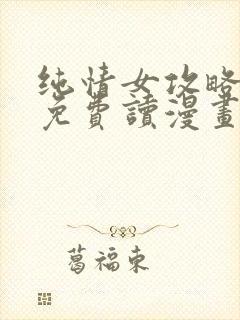 纯情女攻略
免費讀漫畫
葛福東